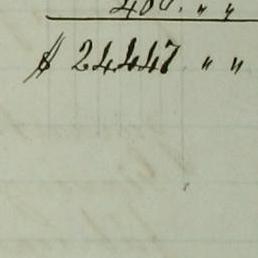 400. " "
$ 24447 " "